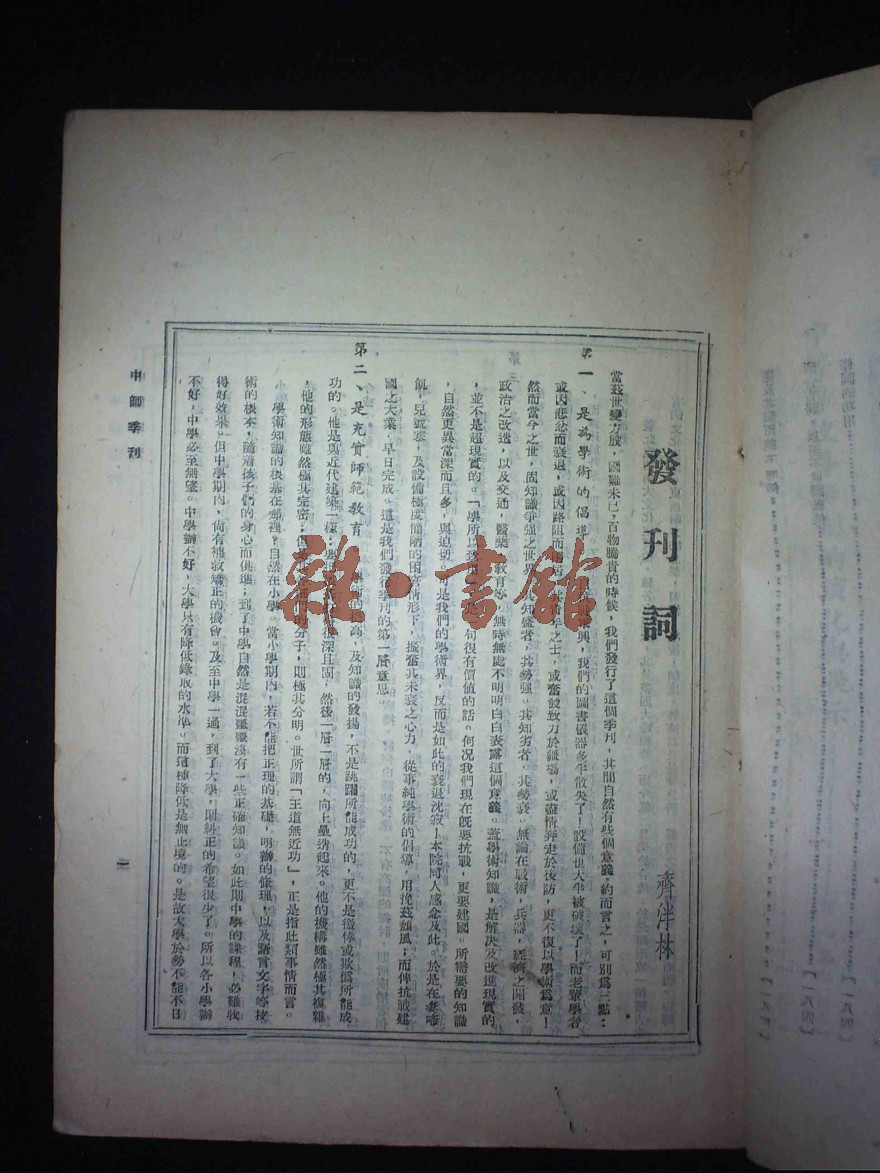 發刊詞
齊泮林
當茲世變方殷，國難未已，百物騰貴的時候，我們發行了這個季刊，其間自然有些個意義，約而言之，可別為三點：
第一、是為學術的倡導　　　興，我們的圖書儀器多半散失了！設備也大半被破壞了！而老輩學者
或因悲忿而衰退，或因路阻而　　青年之士，或奮發致力於疆場，或盡情奔走於後防，更不復以學術為意！
然而當今之世，固知識爭強之世界　知盛者，其勢強。其知劣者，其勢衰。無論在戰術，兵器，經濟之開發，
政治之改進，以及交通，醫藥，教育等，無時無處不明明白白表露這個意義。蓋學術知識，是解決及改進現實的
，並不是超現實的。「學所以　　　句很有價值的話。何況我們現在既要抗戰，更要建國。所需要的知識
，自然更異常深而且多，與迫切　可是我們的學術界，反而是如此的衰退沈寂！本院同人感念及此。於是在妻啼
飢，兒號寒，及設備極度簡陋的困窘情形下，振奮其未衰之心力，從事純學術的倡導，用挽茲頹風；而俾抗戰建
國之大業，早日完成。這是我們發行季刊的第一層意思
第二、是充實師範教育　學術的提高，及知識的發揚，不是跳躍所能成功的，更不是徼倖或欺偽所能成
功的。他是與近代建築一樣：　　　很深且固，然後一層一層的，向上壘積起來。他的機構雖然極其複雜
，他的形態雖然極其完密；但　　　的分子，則極其分明。世所謂「王道無近功」，正是指此類事情而言。
學術知識的根基在那裡？自然在小學。當小學期內，若不能把正理的基礎，明辦的條理，以及語言文字等技
術的根本，隨着孩子們的身心而俱進；到了中學自然是混混沌沌沒有一些正確知識。如此則中學的課程，必難收
得好效果。但中學期內，尚有補救矯正的機會。及至中學一過，到了大學，則糾正的希望很少了。所以各小學辦
不好，中學必至無望。中學辦不好，大學只有降低錄取的水準。而這種降低是無止境的。是故大學於勢不能不日
中師季刊
二
雜·書館
［一八四］
［一八四］